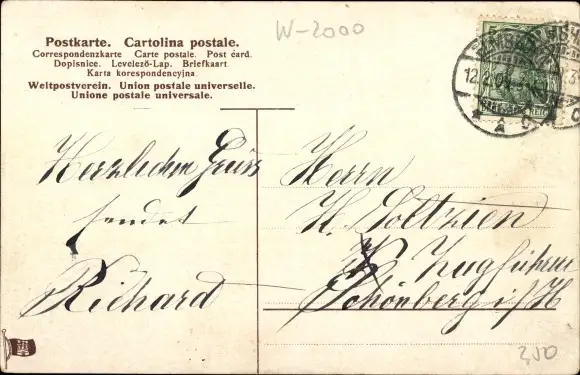 W-2000
Postkarte. Cartolina postale.
Correspondenzkarte Carte postale. Post card.
Dopisnice. Levelező-Lap. Briefkaart
Karta korespondencyjna
Weltpostverein. Union postale universelle.
Unione postale universale.
5
12.
Herzlichen Gruss
sendet
Richard
Herrn
H. Soltzien
Zugführer
Schönberg i/H
250